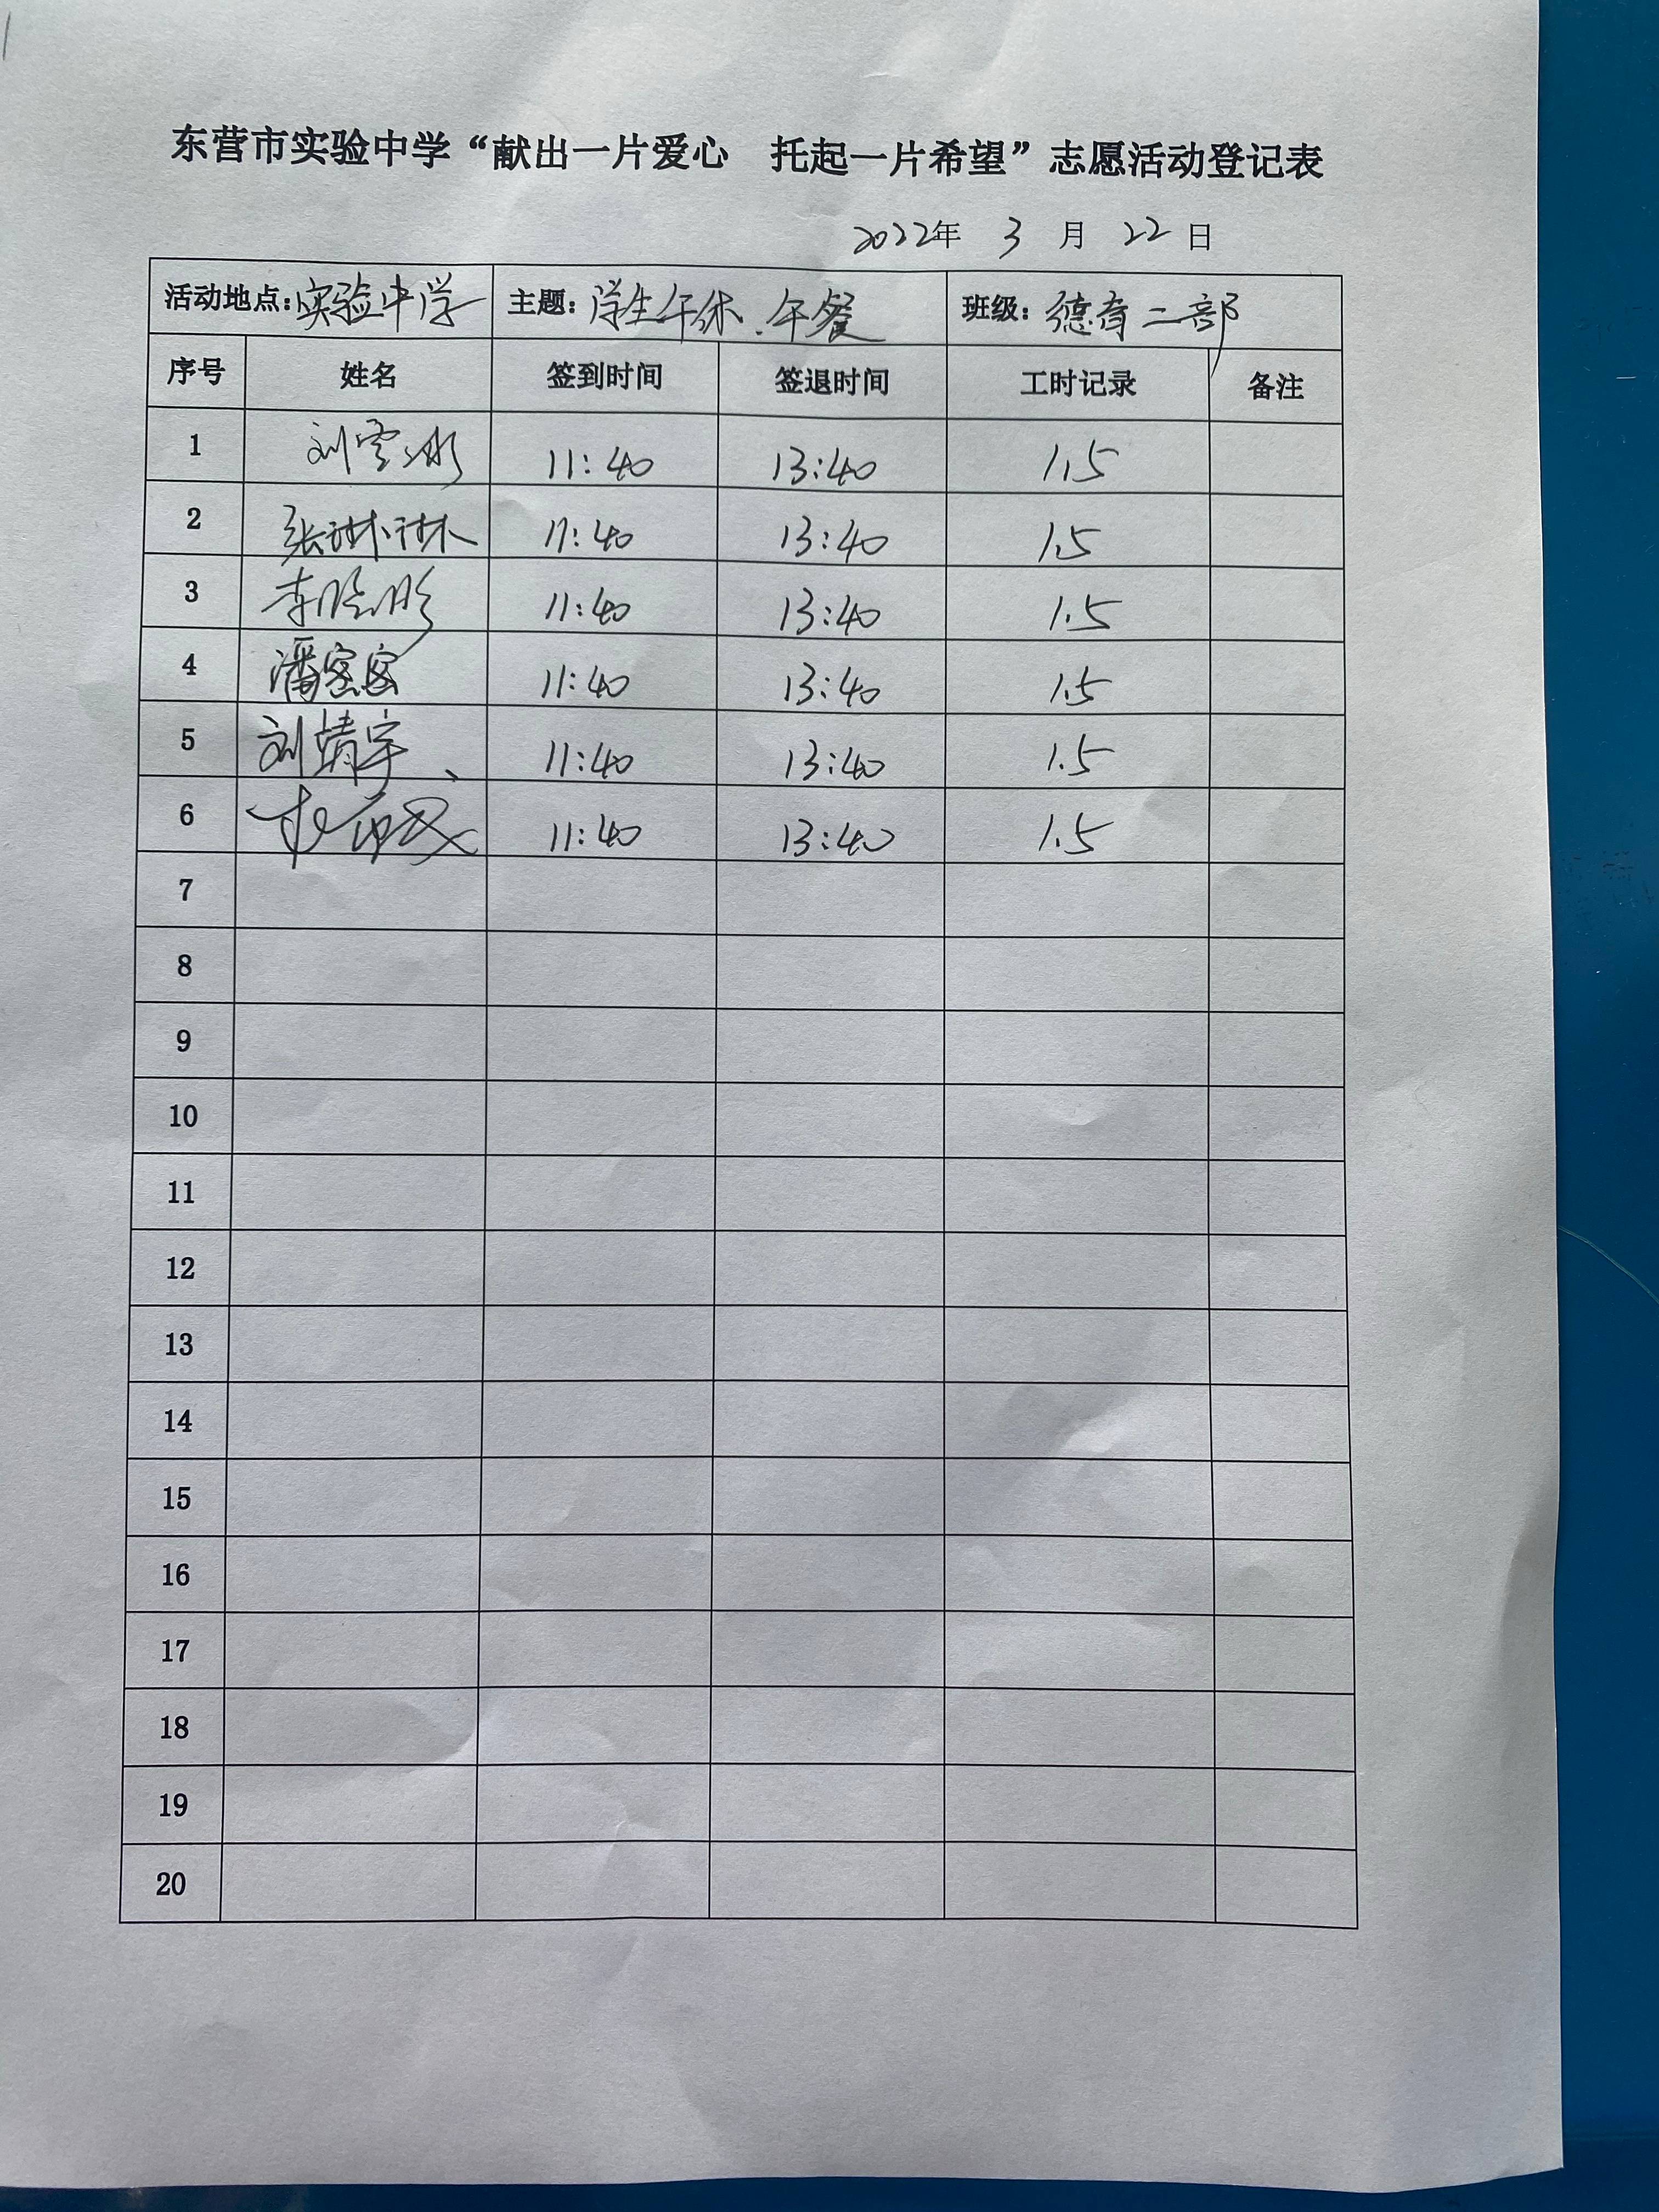 东营市实验中学“献出一片爱心 托起一片希望”志愿活动登记表
2022年 3 月 22 日
活动地点:实验中学 主题:学生午休、午餐 班级:德育二部
序号 姓名 签到时间 签退时间 工时记录 备注
1 刘雪冰 11:40 13:40 1.5
2 张琳琳 11:40 13:40 1.5
3 李晓彤 11:40 13:40 1.5
4 潘密密 11:40 13:40 1.5
5 刘靖宇 11:40 13:40 1.5
6 11:40 13:40 1.5
7
8
9
10
11
12
13
14
15
16
17
18
19
20